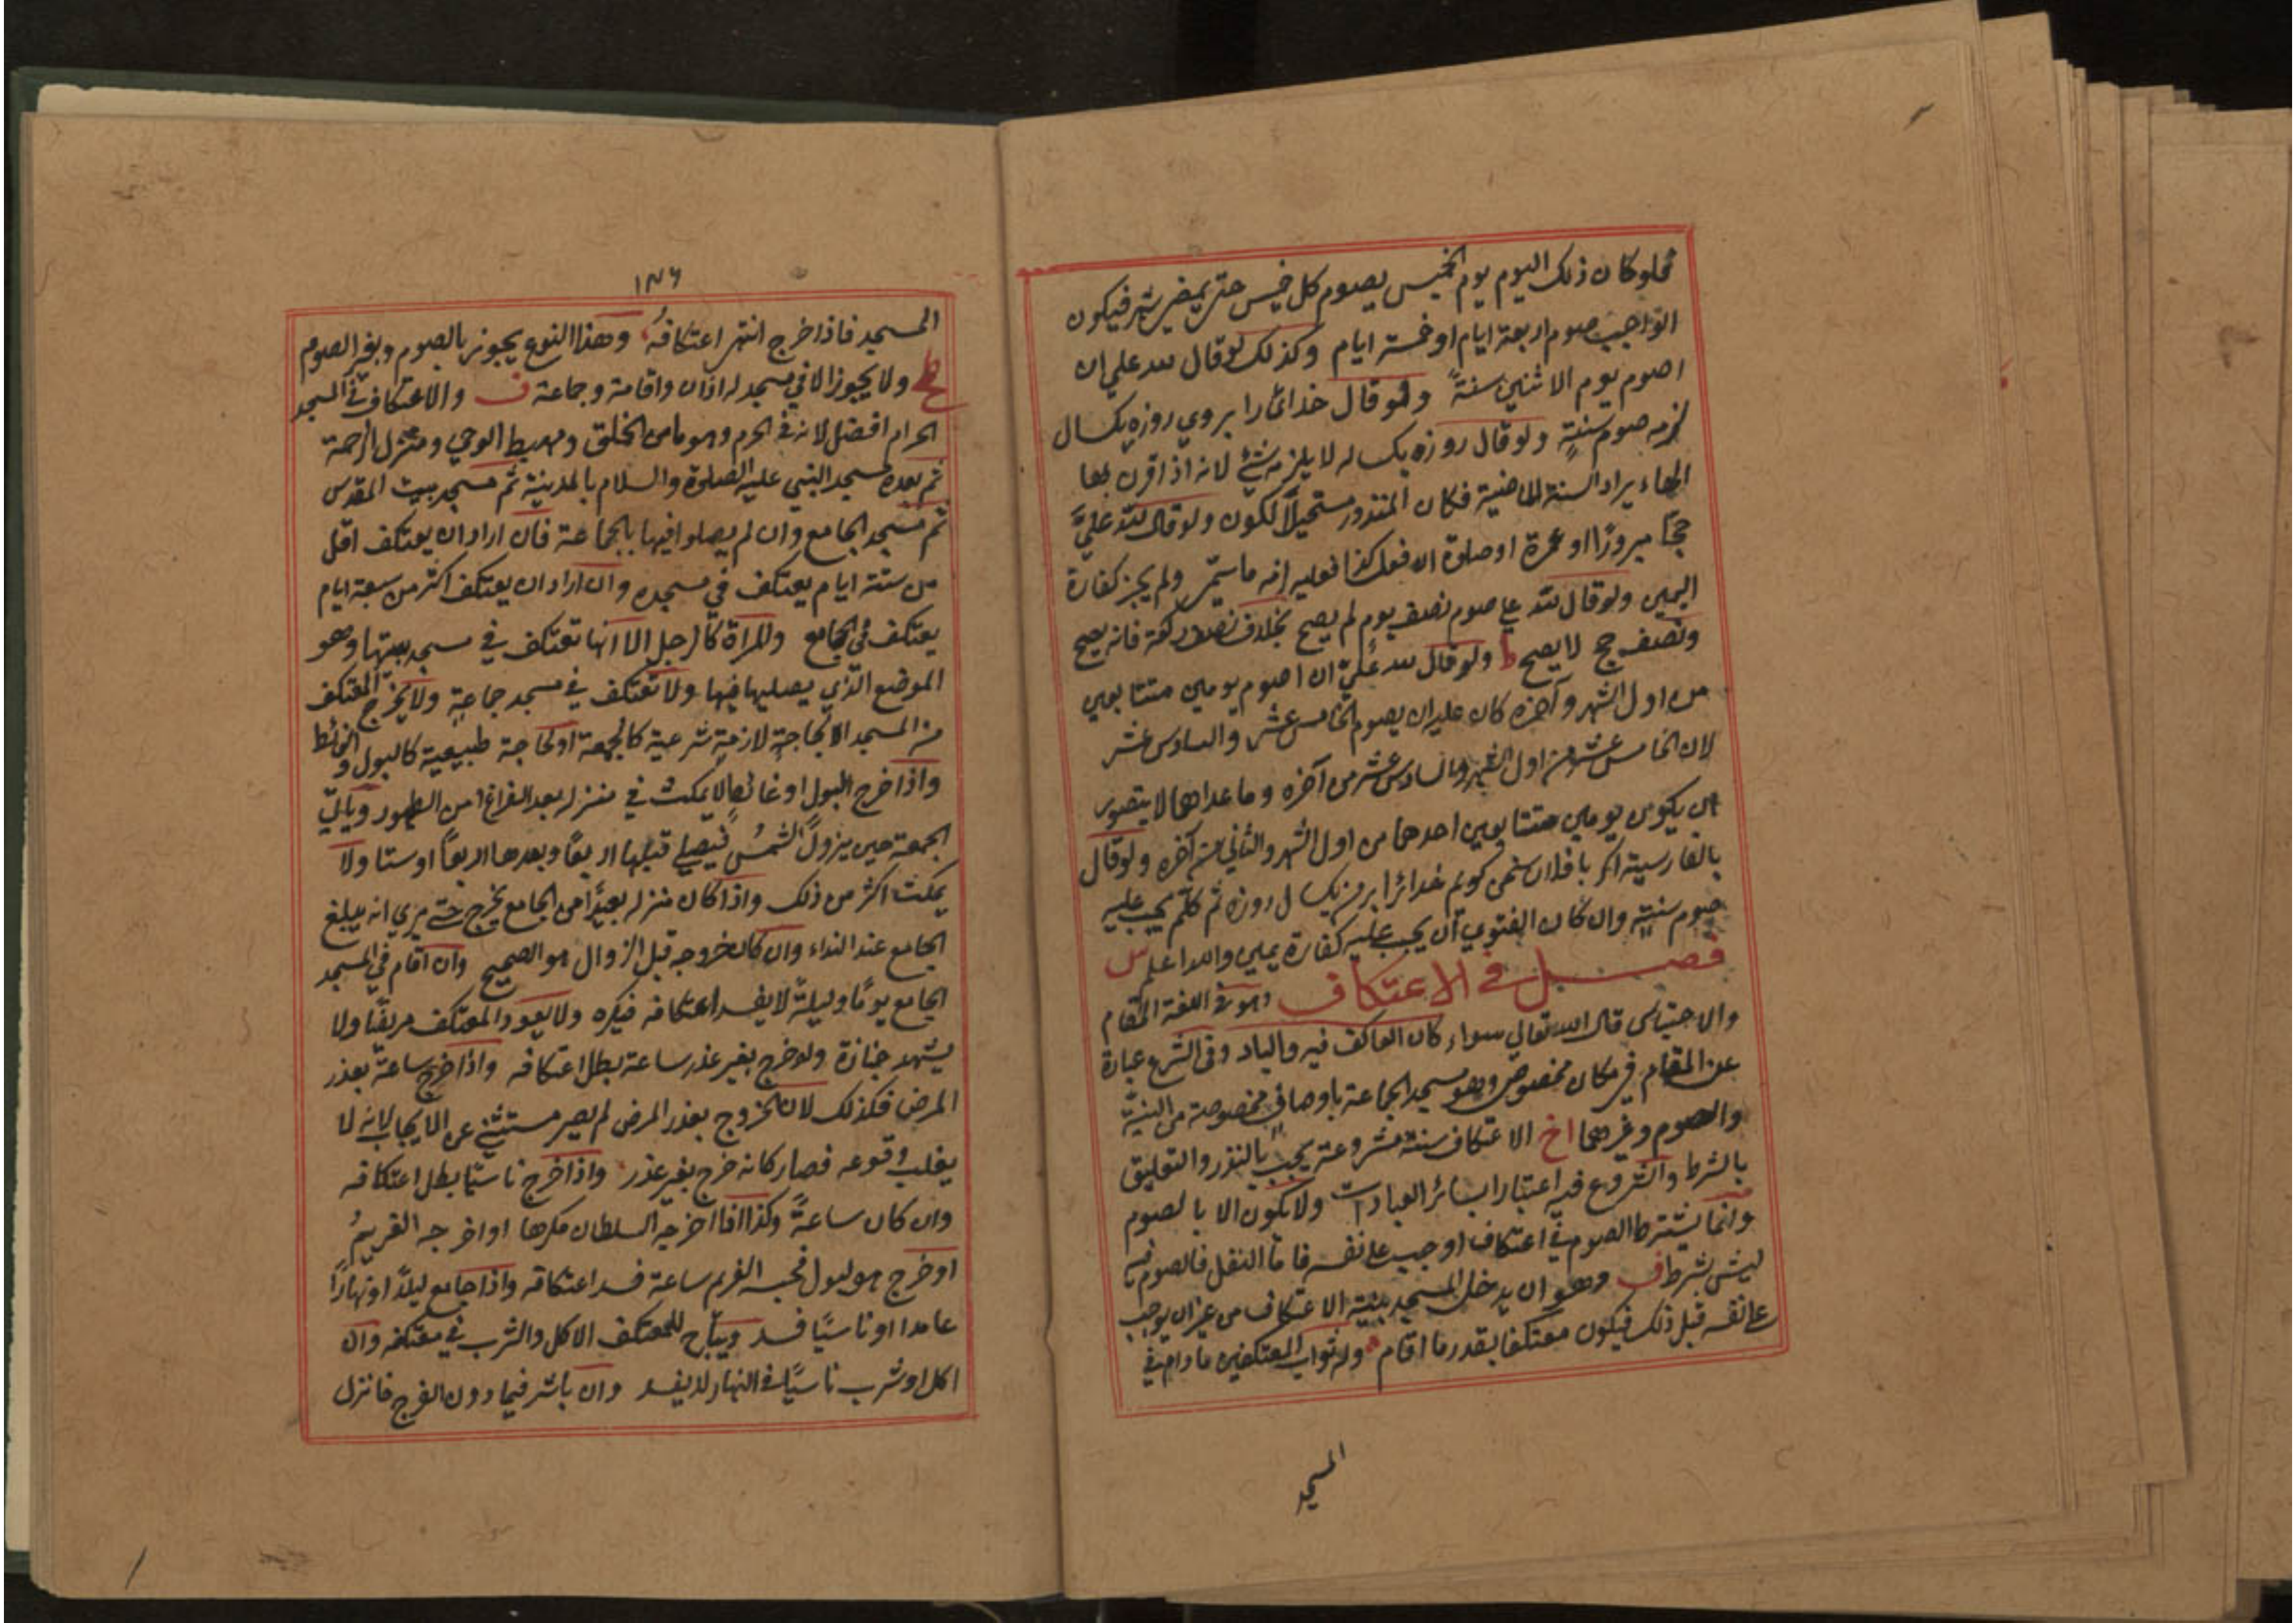 فلو كان ذلك اليوم يوم الخميس يصوم كل خميس حتى يمضي شهر فيكون
الواجب صوم اربعة ايام او خمسة ايام وكذلك لو قال لله علي ان
اصوم يوم الاثنين سنةً ولو قال خدائرا بروي روزه يكسال
لزمه صوم سنةٍ ولو قال روزه يكساله لا يلزمه شئ لانه اذا قرن بها
الهاء يراد السنة الماضية فكان المنذور مستحيلًا لكون ولو قال لله عليَّ
حجًا مبرورًا او عمرة او صلوة ان فعل كذا فعليه انه ما سمّى ولم يجز كفارة
اليمين ولو قال لله علي صوم نصف يوم لم يصح بخلاف نصف ركعة فانه يصح
ونصف حج لا يصح ط ولو قال لله عليّ ان اصوم يومين متتابعين
من اول الشهر وآخره كان عليه ان يصوم الخامس عشر والسادس عشر
لان الخامس عشر من اول الشهر والسادس عشر من آخره وما عداهما لا يتصور
ان يكون يومين متتابعين احدهما من اول الشهر والثاني من آخره ولو قال
بالفارسية اكر با فلان سخن كويم خدائرا بر من يكسال روزه ثم كلّم يجب عليه
صوم سنةٍ وان كان الفتوي ان يجب عليه كفارة يمين والله اعلم س
فصل في الاعتكاف وهو في اللغة المقام
والاحتباس قال الله تعالي سواء كان العاكف فيه والباد وفي الشرع عبارة
عن المقام في مكان مخصوص وهو مسجد الجماعة باوصاف مخصوصة من النيّة
والصوم وغيرهما اخ الاعتكاف سنة مشروعة يجب بالنذر والتعليق
بالشرط والشروع فيه اعتبارا بسائر العبادات ولا يكون الا بالصوم
وانما يشترط الصوم في اعتكاف اوجب علي نفسه فاما النفل فالصوم فيه
ليس بشرط ف وهو ان يدخل المسجد بنية الاعتكاف من غير ان يوجب
علي نفسه قبل ذلك فيكون معتكفا بقدر ما اقام وله ثواب المعتكفين ما دام في
المسجد
١٧٦
المسجد فاذا خرج انتهى اعتكافهُ وهذا النوع يجوز بالصوم وبغير الصوم
ولا يجوز الا في مسجد له اذان واقامة وجماعة ف والاعتكاف في المسجد
الحرام افضل لانه في الحرم وهو مامن الخلق ومهبط الوحي ومنزل الرحمة
ثم بعده مسجد النبي عليه الصلوة والسلام بالمدينة ثم مسجد بيت المقدس
ثم مسجد الجامع وان لم يصلوا فيها بالجماعة فان اراد ان يعتكف اقل
من ستة ايام يعتكف في مسجده وان اراد ان يعتكف اكثر من سبعة ايام
يعتكف في الجامع والمراة كالرجل الا انها تعتكف في مسجد بيتها وهو
الموضع الذي يصليها فيها ولا تعتكف في مسجد جماعةٍ ولا يخرج المعتكف
من المسجد الا لحاجةٍ لازمةٍ شرعية كالجمعة او لحاجة طبيعية كالبول والغائط
واذا خرج البول او غائط لا يمكث في منزله بعد الفراغ من الطهور وياتي
الجمعة حين يزول الشمسُ فيصلي قبلها اربعًا وبعدها اربعًا او ستا ولا
يمكث اكثر من ذلك واذا كان منزله بعيدًا من الجامع يخرج حتي يري انه يبلغ
الجامع عند النداء وان كان خروجه قبل الزوال هو الصحيح وان اقام في المسجد
الجامع يومًا وليلةً لا يفسد اعتكافه فيكره ولا يعود المعتكف مريضًا ولا
يشهد جنازة ولو خرج بغير عذر ساعة بطل اعتكافه واذا خرج ساعةً بعذر
المرض فكذلك لان الخروج بعذر المرض لم يصر مستثني عن الايجاب لانه لا
يغلب وقوعه فصار كانه خرج بغير عذر واذا خرج ناسيًا بطل اعتكافه
وان كان ساعةً وكذا اذا اخرجه السلطان مكرها او اخرجه الغريمُ
او خرج هو لبول فحبسه الغريم ساعة فسد اعتكافه واذا جامع ليلًا او نهارًا
عامدا او ناسيًا فسد ويباح للمعتكف الاكل والشرب في معتكفه وان
اكل او شرب ناسيًا في النهار لا يفسد وان باشر فيما دون الفرج فانزل